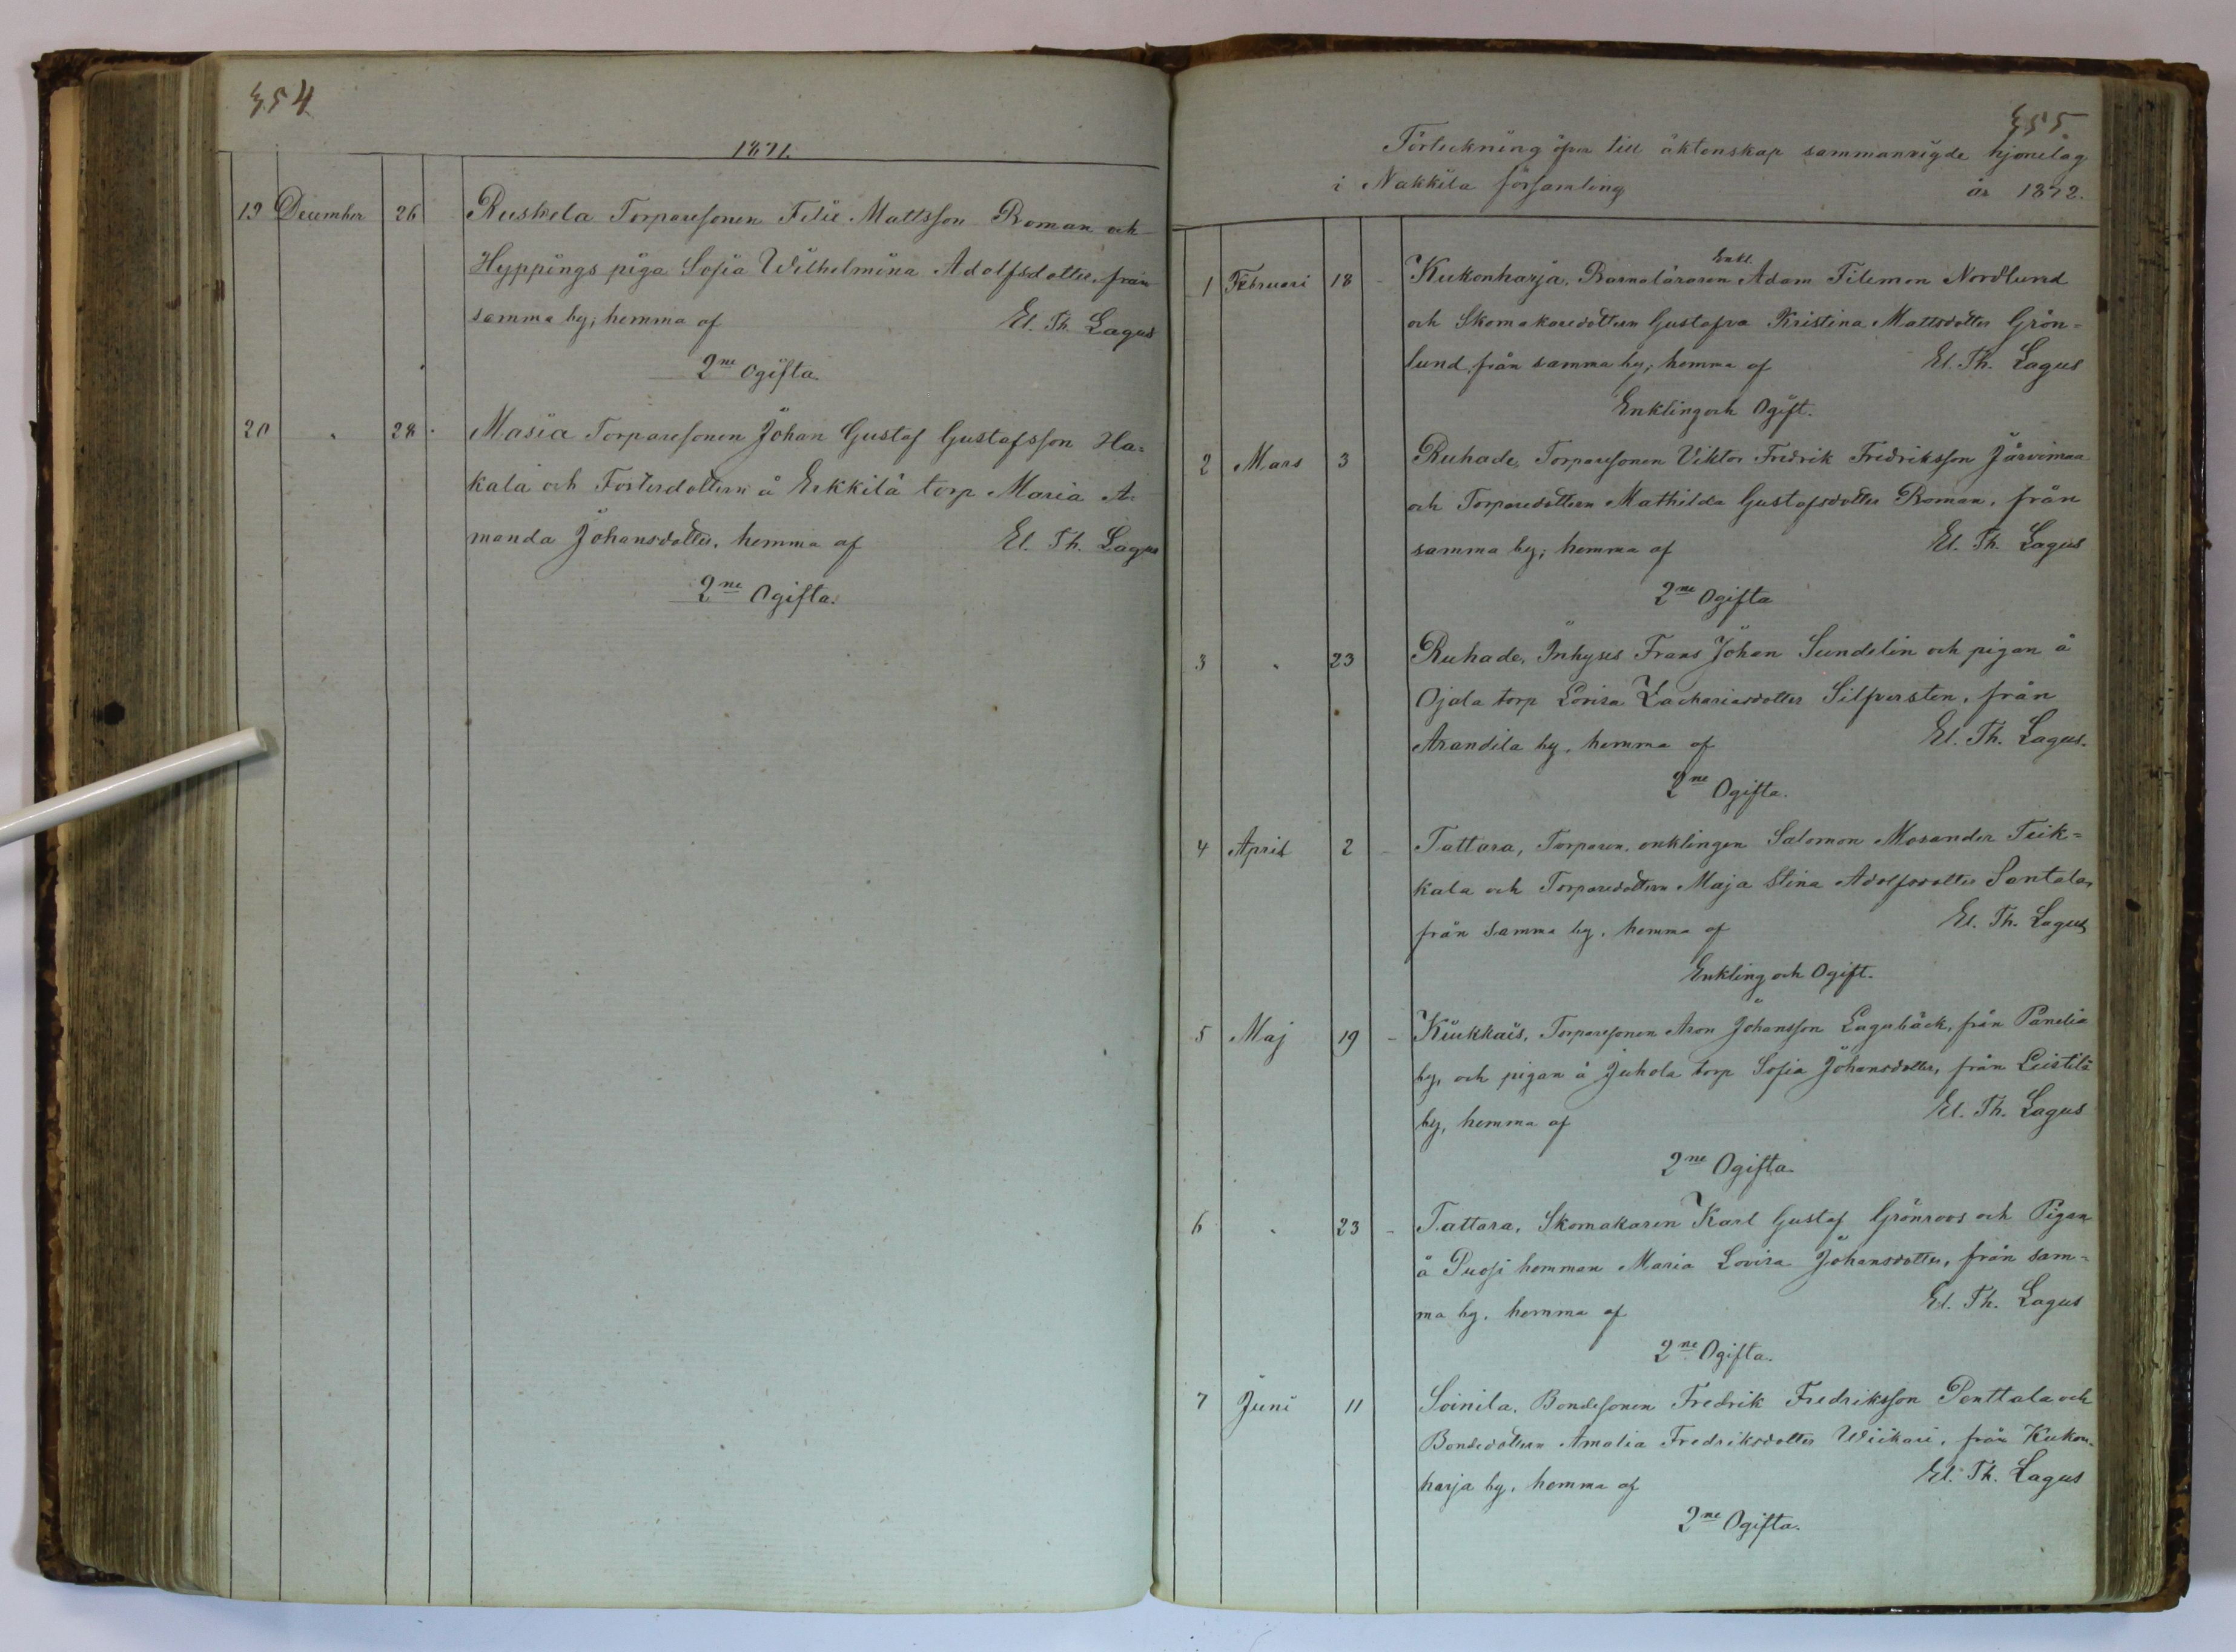 354
1871.
19 December 26 Ruskela Torparesonen Felix Mattsson Roman och
Hyppings piga Sofia Wilhelmina Adolfsdotter, från
samma by; hemma af El. Th. Lagus
2ne Ogifta
20 " 28 Masia Torparesonen Johan Gustaf Gustafsson Ha=
kala och Fosterdottern å Erkkilä torp Maria A=
manda Johansdotter, hemma af El. Th. Lagus
2ne Ogifta.
355
Förteckning öfver till äktenskap sammanvigde hjonelag
i Nakkila församling år 1872.
Enkl.
1 Februari 18 Kukonharja, Barnaläraren Adam Filemon Nordlund
och Skomakaredottern Gustafva Kristina Mattsdotter Grön=
lund, från samma by; hemma af El. Th. Lagus
Enkling och Ogift.
2 Mars 3 Ruhade, Torparesonen Viktor Fredrik Fredriksson Järvimaa
och Torparedottern Mathilda Gustafsdotter Roman, från
samma by; hemma af El. Th. Lagus
2ne Ogifta
3 " 23 Ruhade, Inhyses Frans Johan Sundelin och pigan å
Ojala torp Lovisa Zachariasdotter Silfversten, från
Arandila by, hemma af El. Th. Lagus.
2ne Ogifta.
4 April 2 Tattara, Torparen, enklingen Salomon Mosander Teik=
kala och Torparedottern Maja Stina Adolfsdotter Santala,
från samma by, hemma af El. Th. Lagus
Enkling och Ogift.
5 Maj 19 Kiukkais, Torparesonen Aron Johansson Lagerbäck, från Panelia
by, och pigan å Juhola torp Sofia Johansdotter, från Leistilä
by, hemma af El. Th. Lagus
2ne Ogifta
6 " 23 Tattara, Skomakaren Karl Gustaf Grönroos och Pigan
å Puosi hemman Maria Lovisa Johansdotter, från sam=
ma by, hemma af El. Th. Lagus
2ne Ogifta.
7 Juni 11 Soinila, Bondesonen Fredrik Fredriksson Penttala och
Bondedottern Amalia Fredriksdotter Wiikari, från Kukon=
harja by, hemma af El. Th. Lagus
2ne Ogifta.